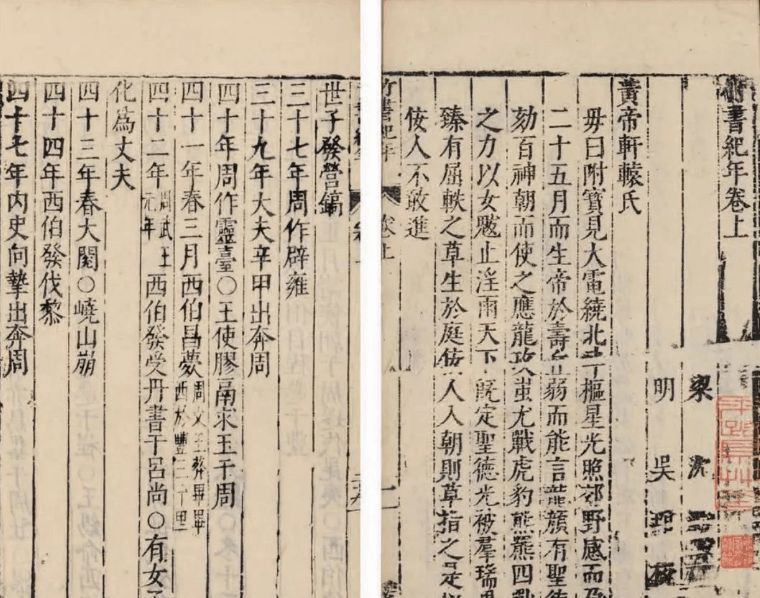 竹書紀年卷上
梁 沈
明 吳 琯 校
黃帝軒轅氏
母曰附寶見大電繞北斗樞星光照郊野感而孕
二十五月而生帝於壽丘弱而能言龍顏有聖德
劾百神朝而使之應龍攻蚩尤戰虎豹熊羆四戰
之力以女魃止淫雨天下既定聖德光被羣瑞畢
臻有屈軼之草生於庭佞人入朝則草指之是以
佞人不敢進
竹書紀年 卷上 一
世子發營鎬
三十七年周作辟雍
三十九年大夫辛甲出奔周
四十年周作靈臺○王使膠鬲求玉于周
四十一年春三月西伯昌薨周文王葬畢畢西於豐三十里
四十二年周武王元年西伯發受丹書于呂尚○有女子
化爲丈夫
四十三年春大閱○嶢山崩
四十四年西伯發伐黎
四十七年內史向摯出奔周